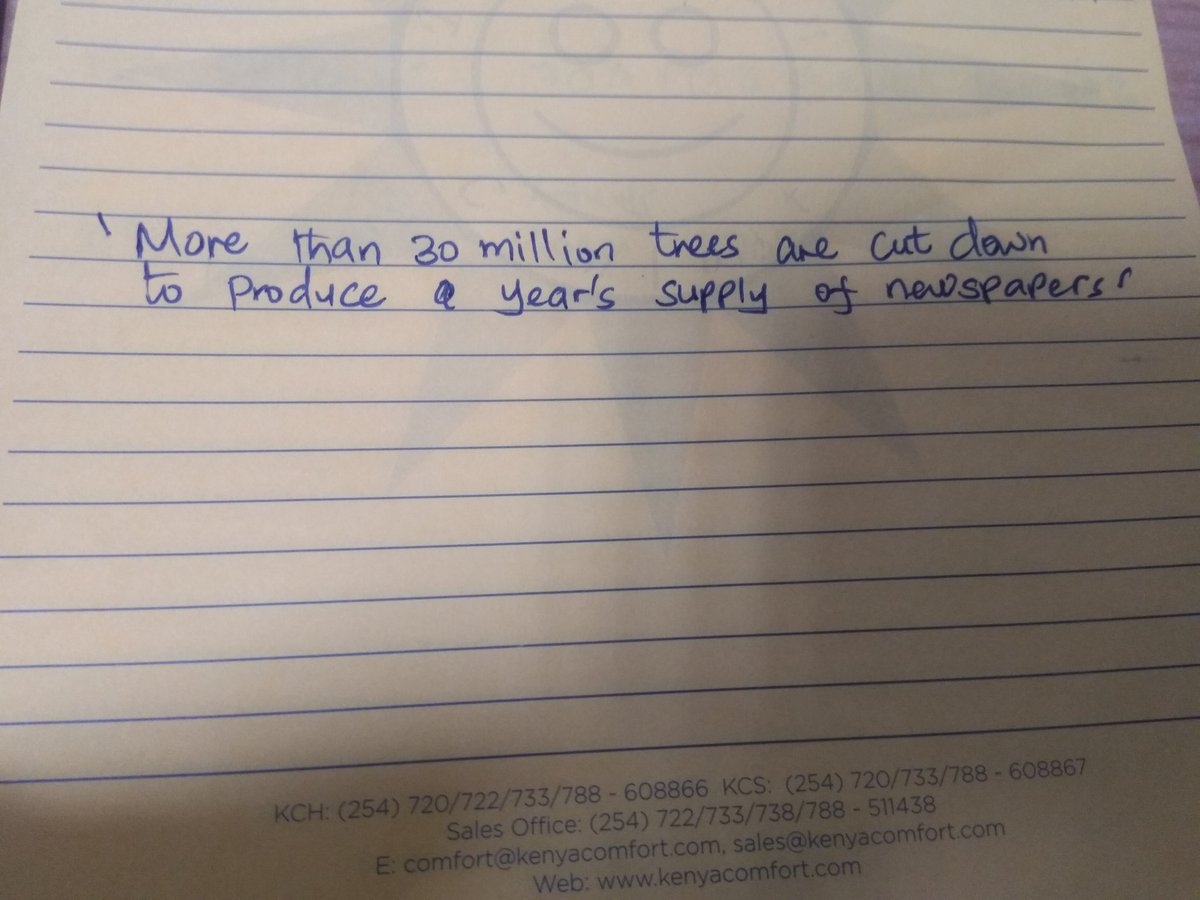 'More than 30 million trees are cut down
to produce a year's supply of newspapers'
KCH: (254) 720/722/733/788 - 608866 KCS: (254) 720/733/788 - 608867
Sales Office: (254) 722/733/738/788 - 511438
E: comfort@kenyacomfort.com, sales@kenyacomfort.com
Web: www.kenyacomfort.com